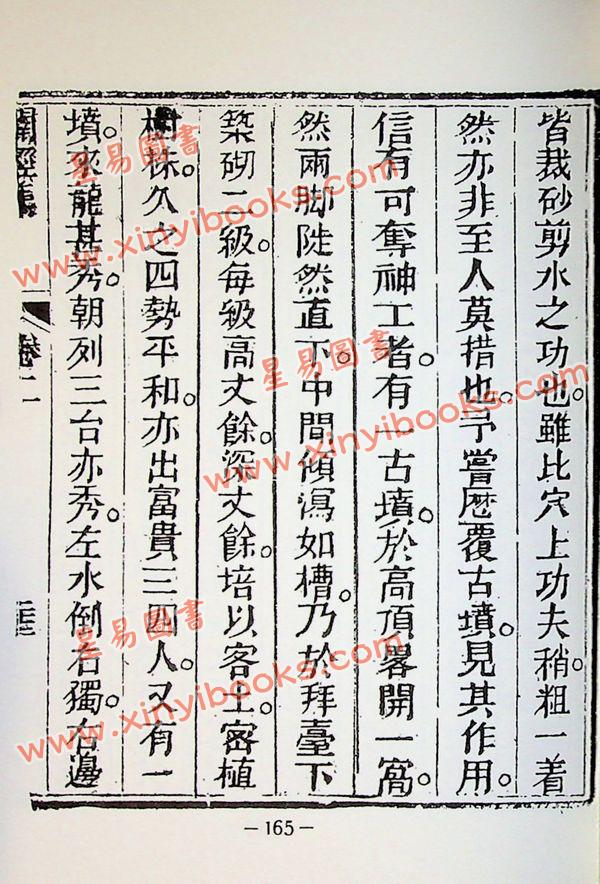 皆裁砂剪水之功也。雖比穴上功夫稍粗。一着
然亦非至人莫措也。予嘗歷覆古墳。見其作用。
信有可奪神工者。有一古墳。於高頂畧開一窩。
然兩脚陡然直下。中間傾瀉如槽。乃於拜臺下
築砌二級。每級高丈餘。深丈餘。培以客土。密植
樹株。久之四勢平和。亦出富貴三四人。又有一
墳。來龍甚秀。朝列三台亦秀。左水倒右。獨右邊
卷二
星易圖書
www.xinyibooks.com
星易圖書
www.xinyibooks.com
星易圖書
www.xinyibooks.com
-165-